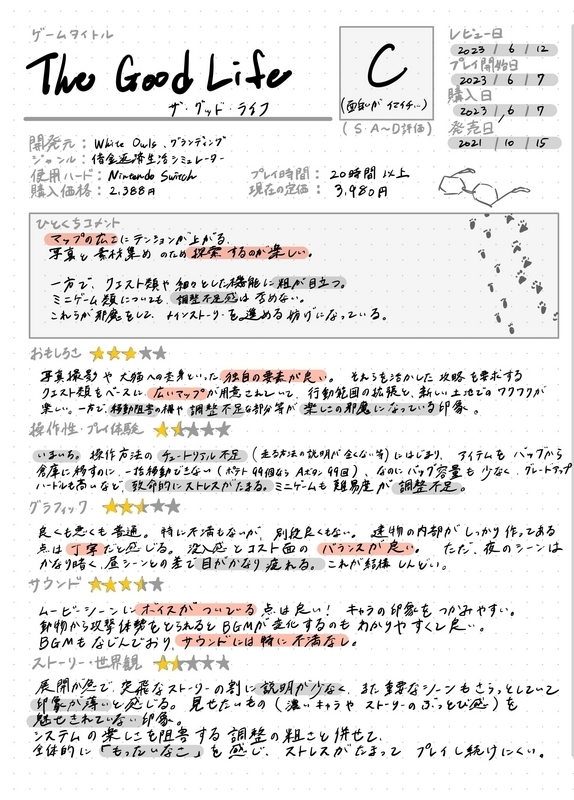 ゲームタイトル
The Good Life
ザ・グッド・ライフ
C
(面白いが イマイチ…)
(S・A~D評価)
レビュー日
2023 / 6 / 12
プレイ開始日
2023 / 6 / 7
購入日
2023 / 6 / 7
発売日
2021 / 10 / 15
開発元：White Owls、グランディング
ジャンル：借金返済生活シミュレーター
使用ハード：Nintendo Switch
購入価格：2,388円
プレイ時間：20時間以上
現在の定価：3,980円
ひとくちコメント
マップの広さにテンションが上がる。
写真と素材集めのため探索するのが楽しい。
一方で、クエスト類や細々とした機能に粗が目立つ。
ミニゲーム類についても、調整不足感は否めない。
これらが邪魔をして、メインストーリーを進める妨げになっている。
おもしろさ
写真撮影や犬猫への変身といった独自の要素が良い。それらを活かした攻略を要求する
クエスト類もベースに広いマップが用意されていて、行動範囲の拡張と、新しい土地でのワクワクが
楽しい。一方で、移動阻害の柵や調整不足な部分等が楽しさの邪魔になっている印象。
操作性・プレイ体験
いまいち。操作方法のチュートリアル不足(走る方法の説明が全くない等)にはじまり、アイテムもバッグから
倉庫に移すのに一括移動できない(ポテト99個ならAボタン99回)、なのにバッグ容量も少なく、グレードアップ
ハードルも高いなど、致命的にストレスがたまる。ミニゲームも難易度が調整不足。
グラフィック
良くも悪くも普通。特に不満もないが、別段良くもない。建物の内部がしっかり作ってある
点は丁寧だと感じる。没入感とコスト面のバランスが良い。ただ、夜のシーンは
かなり暗く、昼シーンとの差で目がかなり疲れる。これが結構しんどい。
サウンド
ムービーシーンにボイスがついている点は良い!キャラの印象をつかみやすい。
動物から攻撃体勢をとられるとBGMが変化するのもわかりやすくて良い。
BGMもなじんでおり、サウンドには特に不満なし。
ストーリー・世界観
展開が急で、突飛なストーリーの割に説明が少なく、また重要なシーンもさらっとしていて
印象が薄いと感じる。見せたいもの(濃いキャラやストーリーのぶっとび感)を
魅せきれていない印象。
システムの楽しさを阻害する調整の粗さと併せて、
全体的に「もったいなさ」を感じ、ストレスがたまって プレイし続けにくい。